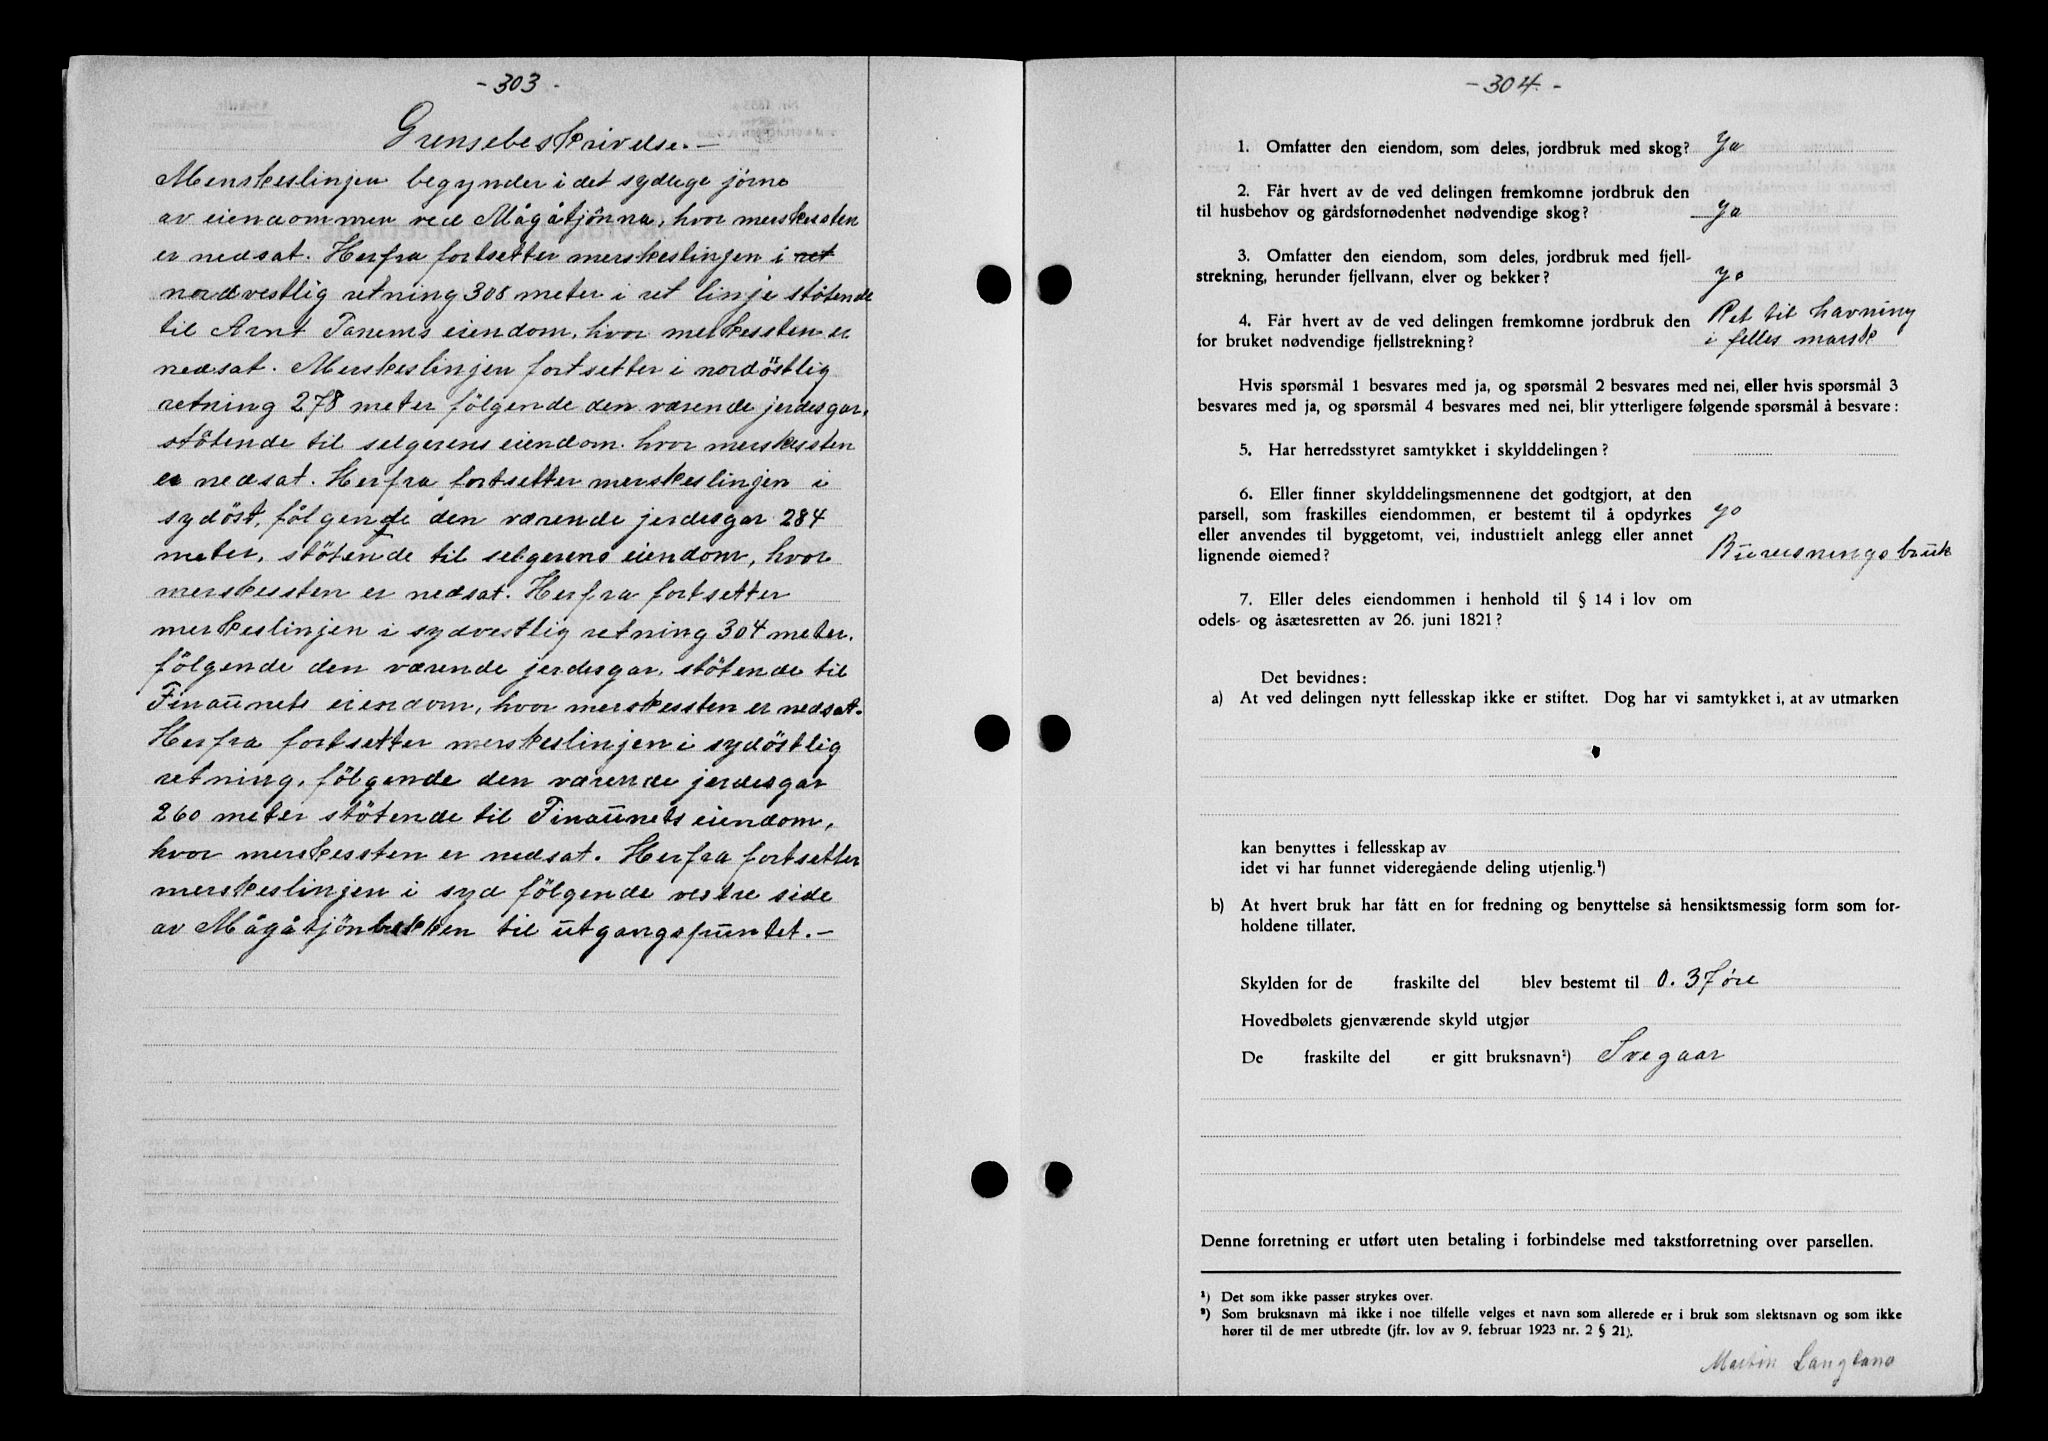 - 303 -
Grensebeskrivelse. -
Merskeslinjen begynder i det sydlige jörne
av eiendommen ved Mågåtjönna, hvor merskessten
er nedsat. Herfra fortsetter merskeslinjen i ret
nordvestlig retning 308 meter i ret linje stötende
til Arnt Tanems eiendom, hvor merkessten er
nedsat. Merskeslinjen fortsetter i nordöstlig
retning 278 meter fölgende den værende jerdesgar,
stötende til selgerens eiendom. hvor merskessten
er nedsat. Herfra fortsetter merskeslinjen i
sydöst, fölgende den værende jerdesgar 284
meter, stötende til selgerens eiendom, hvor
merskessten er nedsat. Herfra fortsetter
merskeslinjen i sydvestlig retning 304 meter.
fölgende den værende jerdesgar, stötende til
Finaunets eiendom, hvor merskessten er nedsat.
Herfra fortsetter merskeslinjen i sydöstlig
retning, fölgende den værende jerdesgar
260 meter stötende til Finaunets eiendom,
hvor merskessten er nedsat. Herfra fortsetter
merskeslinjen i syd fölgende vestre side
av Mågåtjönbekken til utgangspuntet. -
- 304. -
1. Omfatter den eiendom, som deles, jordbruk med skog? Ja
2. Får hvert av de ved delingen fremkomne jordbruk den
til husbehov og gårdsfornødenhet nødvendige skog? Ja
3. Omfatter den eiendom, som deles, jordbruk med fjell-
strekning, herunder fjellvann, elver og bekker? Ja
4. Får hvert av de ved delingen fremkomne jordbruk den Ret til havning
for bruket nødvendige fjellstrekning? i felles marsk
Hvis spørsmål 1 besvares med ja, og spørsmål 2 besvares med nei, eller hvis spørsmål 3
besvares med ja, og spørsmål 4 besvares med nei, blir ytterligere følgende spørsmål å besvare:
5. Har herredsstyret samtykket i skylddelingen?
6. Eller finner skylddelingsmennene det godtgjort, at den
parsell, som fraskilles eiendommen, er bestemt til å opdyrkes Ja
eller anvendes til byggetomt, vei, industrielt anlegg eller annet
lignende øiemed? Bureisningsbruk
7. Eller deles eiendommen i henhold til § 14 i lov om
odels- og åsætesretten av 26. juni 1821?
Det bevidnes:
a) At ved delingen nytt fellesskap ikke er stiftet. Dog har vi samtykket i, at av utmarken
kan benyttes i fellesskap av
idet vi har funnet videregående deling utjenlig.¹)
b) At hvert bruk har fått en for fredning og benyttelse så hensiktsmessig form som for-
holdene tillater.
Skylden for de fraskilte del blev bestemt til 0.37 øre
Hovedbølets gjenværende skyld utgjør
De fraskilte del er gitt bruksnavn²) Svegaar
Denne forretning er utført uten betaling i forbindelse med takstforretning over parsellen.
¹) Det som ikke passer strykes over.
²) Som bruksnavn må ikke i noe tilfelle velges et navn som allerede er i bruk som slektsnavn og som ikke
hører til de mer utbredte (jfr. lov av 9. februar 1923 nr. 2 § 21).
Martin Langland